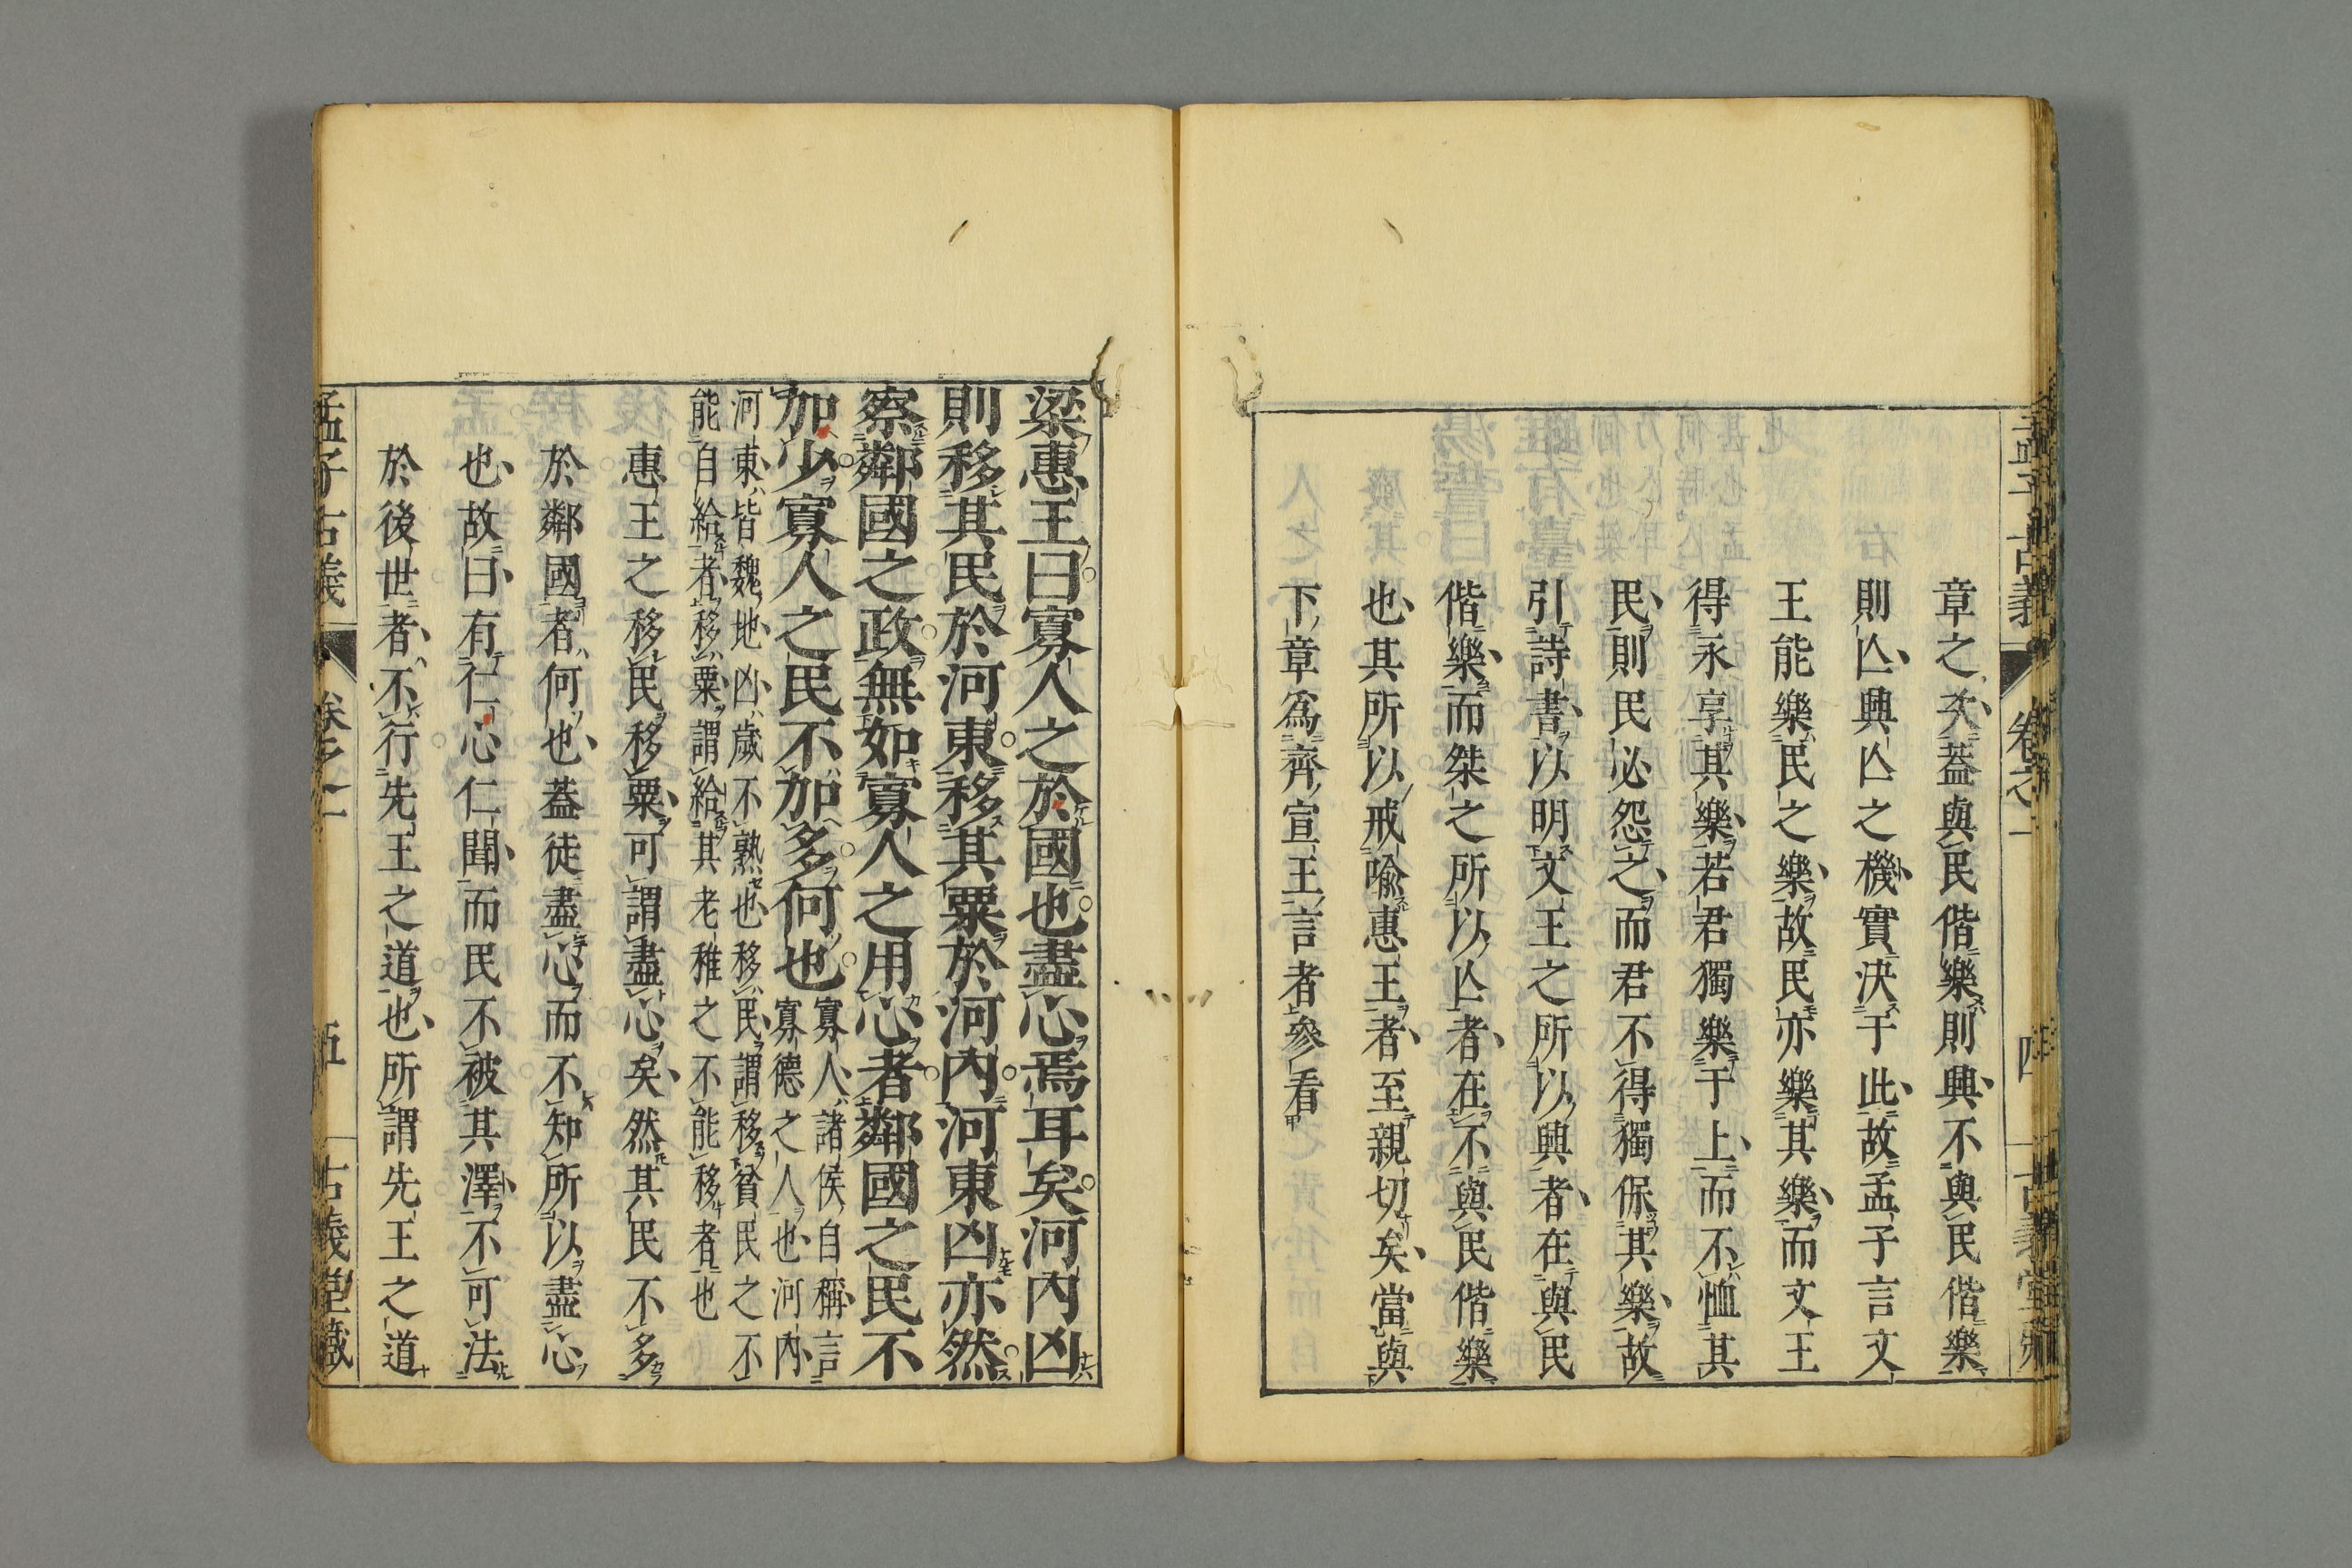 孟子古義 卷之一 四 古義堂藏
章之次蓋與民偕樂則興不與民偕樂
則亾興亾之機實決于此故孟子言文
王能樂民之樂故民亦樂其樂而文王
得永享其樂若君獨樂于上而不恤其
民則民必怨之而君不得獨保其樂故
引詩書以明文王之所以興者在與民
偕樂而桀之所以亾者在不與民偕樂
也其所以戒喩惠王者至親切矣當與
下章爲齊宣王言者參看
梁惠王曰寡人之於國也盡心焉耳矣河內凶
則移其民於河東移其粟於河內河東凶亦然
察鄰國之政無如寡人之用心者鄰國之民不
加少寡人之民不加多何也
寡人諸侯自稱言
寡德之人也河內
河東皆魏地凶歲不熟也移民謂移貧民之不
能自給者移粟謂給其老稚之不能移者也
惠王之移民移粟可謂盡心矣然其民不多
於鄰國者何也蓋徒盡心而不知所以盡心
也故曰有仁心仁聞而民不被其澤不可法
於後世者不行先王之道也所謂先王之道
孟子古義 卷之一 五 古義堂藏